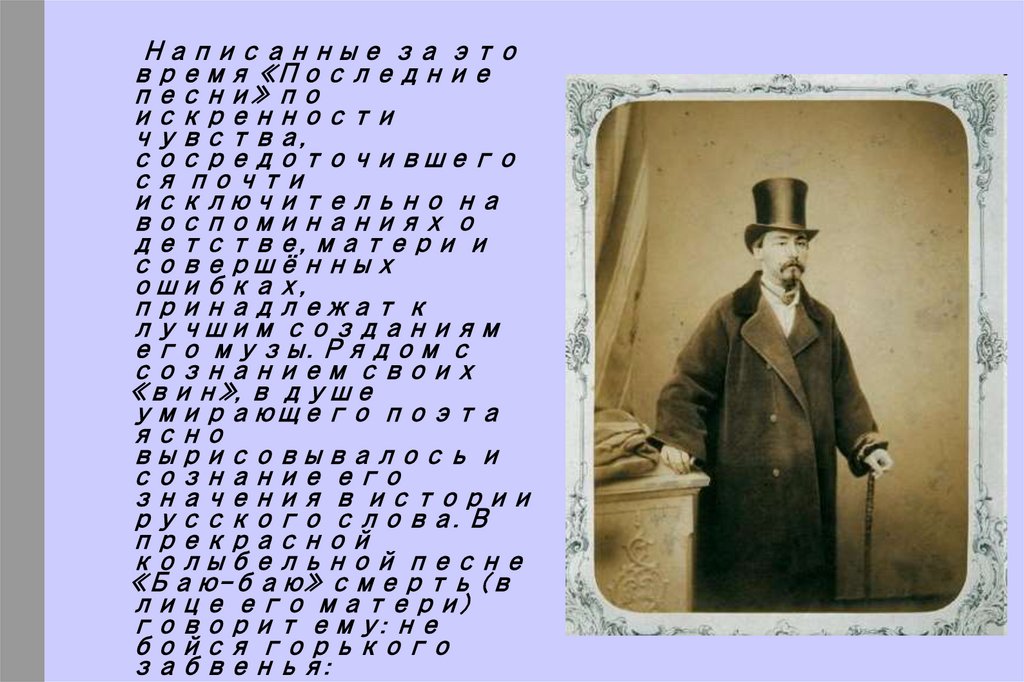 Написанные за это
время «Последние
песни» по
искренности
чувства,
сосредоточившего
ся почти
исключительно на
воспоминаниях о
детстве, матери и
совершённых
ошибках,
принадлежат к
лучшим созданиям
его музы. Рядом с
сознанием своих
«вин», в душе
умирающего поэта
ясно
вырисовывалось и
сознание его
значения в истории
русского слова. В
прекрасной
колыбельной песне
«Баю-баю» смерть (в
лице его матери)
говорит ему: не
бойся горького
забвенья: